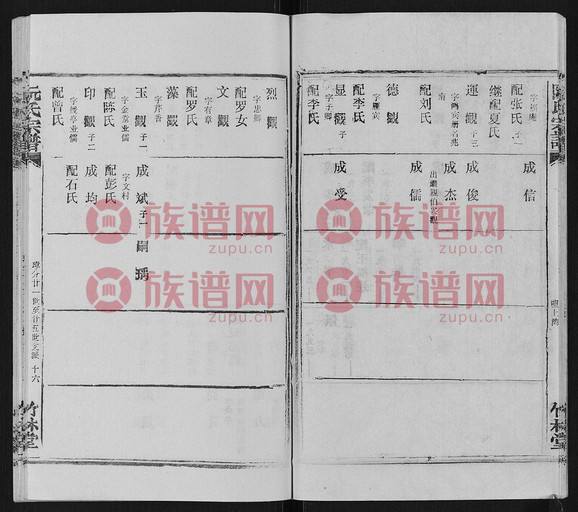 配張氏
繼配夏氏
運觀
子三
配刘氏
德觀
字寵賓
配李氏
显觀
子二
字子卿
配李氏
成信
成俊
成杰
出繼親伯寵觀
成儒
成受
烈觀
字忠卿
配罗女
文觀
字有章
配罗氏
藻觀
字芹香
玉觀
子一
字金臺业儒
配陈氏
印觀
子二
字授亭业儒
配曾氏
成斌
子一
字文村
配彭氏
成均
配石氏
嗣璃
阮氏宗譜
璋分廿一世至廿五世支派
十六
竹林堂
阮氏宗譜
竹林堂
族谱网
zupu.cn
族谱网
zupu.cn
族谱网
zupu.cn
族谱网
zupu.cn